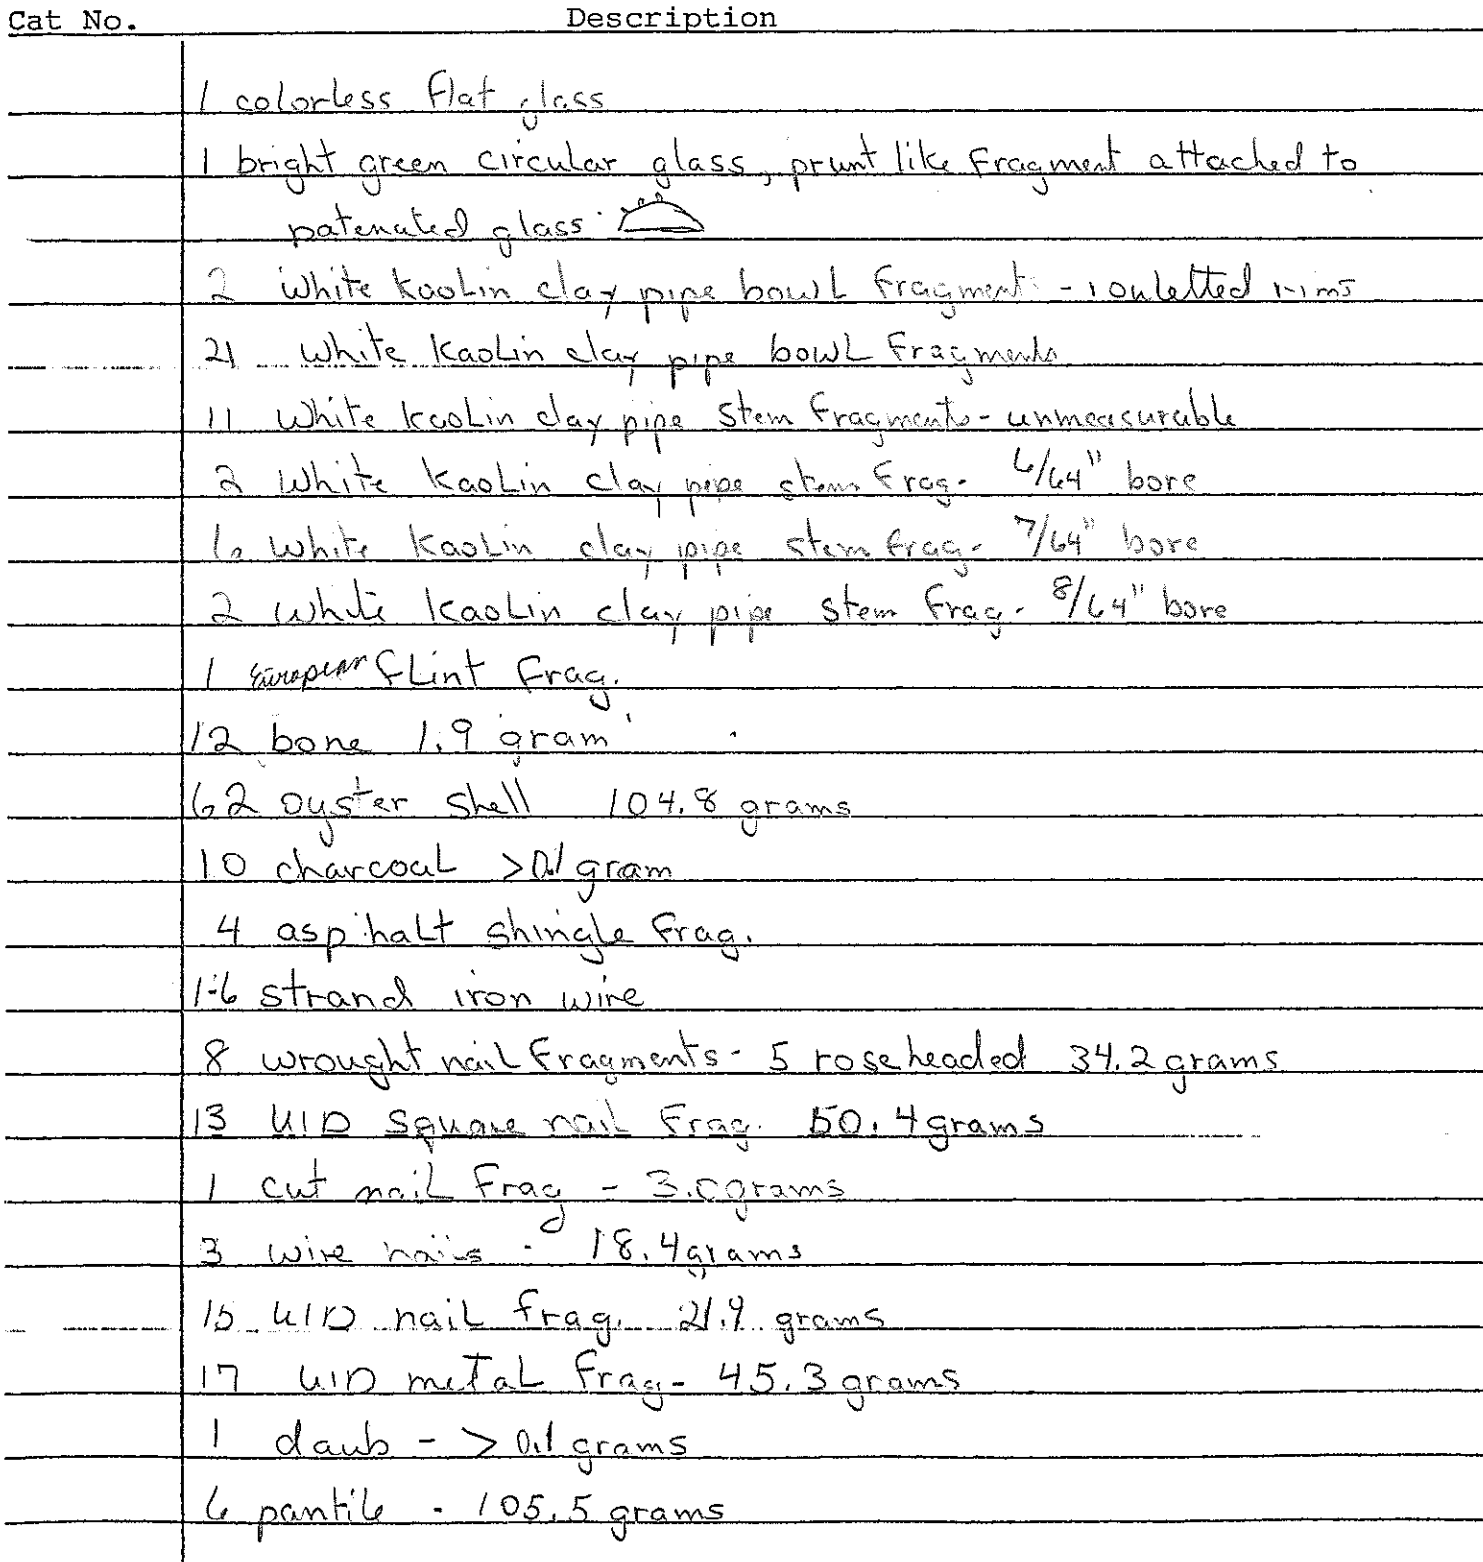 Cat No. Description
1 colorless flat glass
1 bright green circular glass, prunt like fragment attached to
patenated glass
2 white kaolin clay pipe bowl fragment - rouletted rims
21 white kaolin clay pipe bowl fragments
11 white kaolin clay pipe stem fragments - unmeasurable
2 white kaolin clay pipe stem frag. 6/64" bore
6 white kaolin clay pipe stem frag - 7/64" bore
2 white kaolin clay pipe stem frag - 8/64" bore
1 European flint frag.
12 bone 1.9 gram
62 oyster shell 104.8 grams
10 charcoal >0.1 gram
4 asphalt shingle frag.
1-6 strand iron wire
8 wrought nail fragments - 5 roseheaded 34.2 grams
13 UID square nail frag. 50.4 grams
1 cut nail frag - 3.0 grams
3 wire nails - 18.4 grams
15 UID nail frag. 21.9 grams
17 UID metal frag - 45.3 grams
1 daub - > 0.1 grams
6 pantile - 105.5 grams